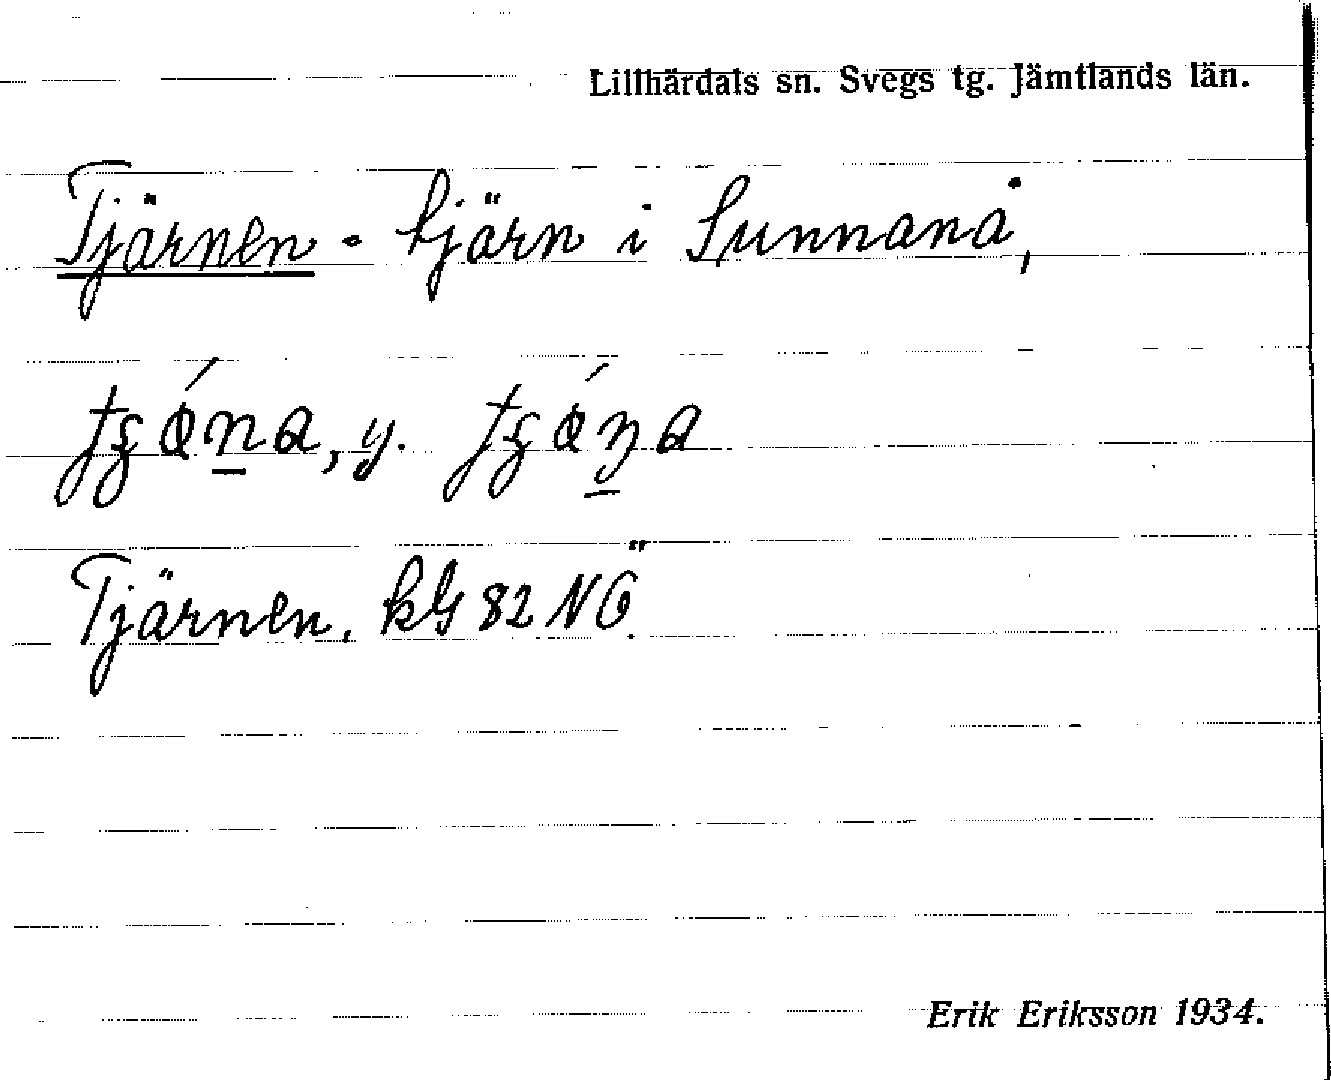 Lillhärdals sn. Svegs tg. Jämtlands län.
Tjärnen - tjärn i Sunnanå,
y.
Tjärnen. kG 82 NÖ.
Erik Eriksson 1934.